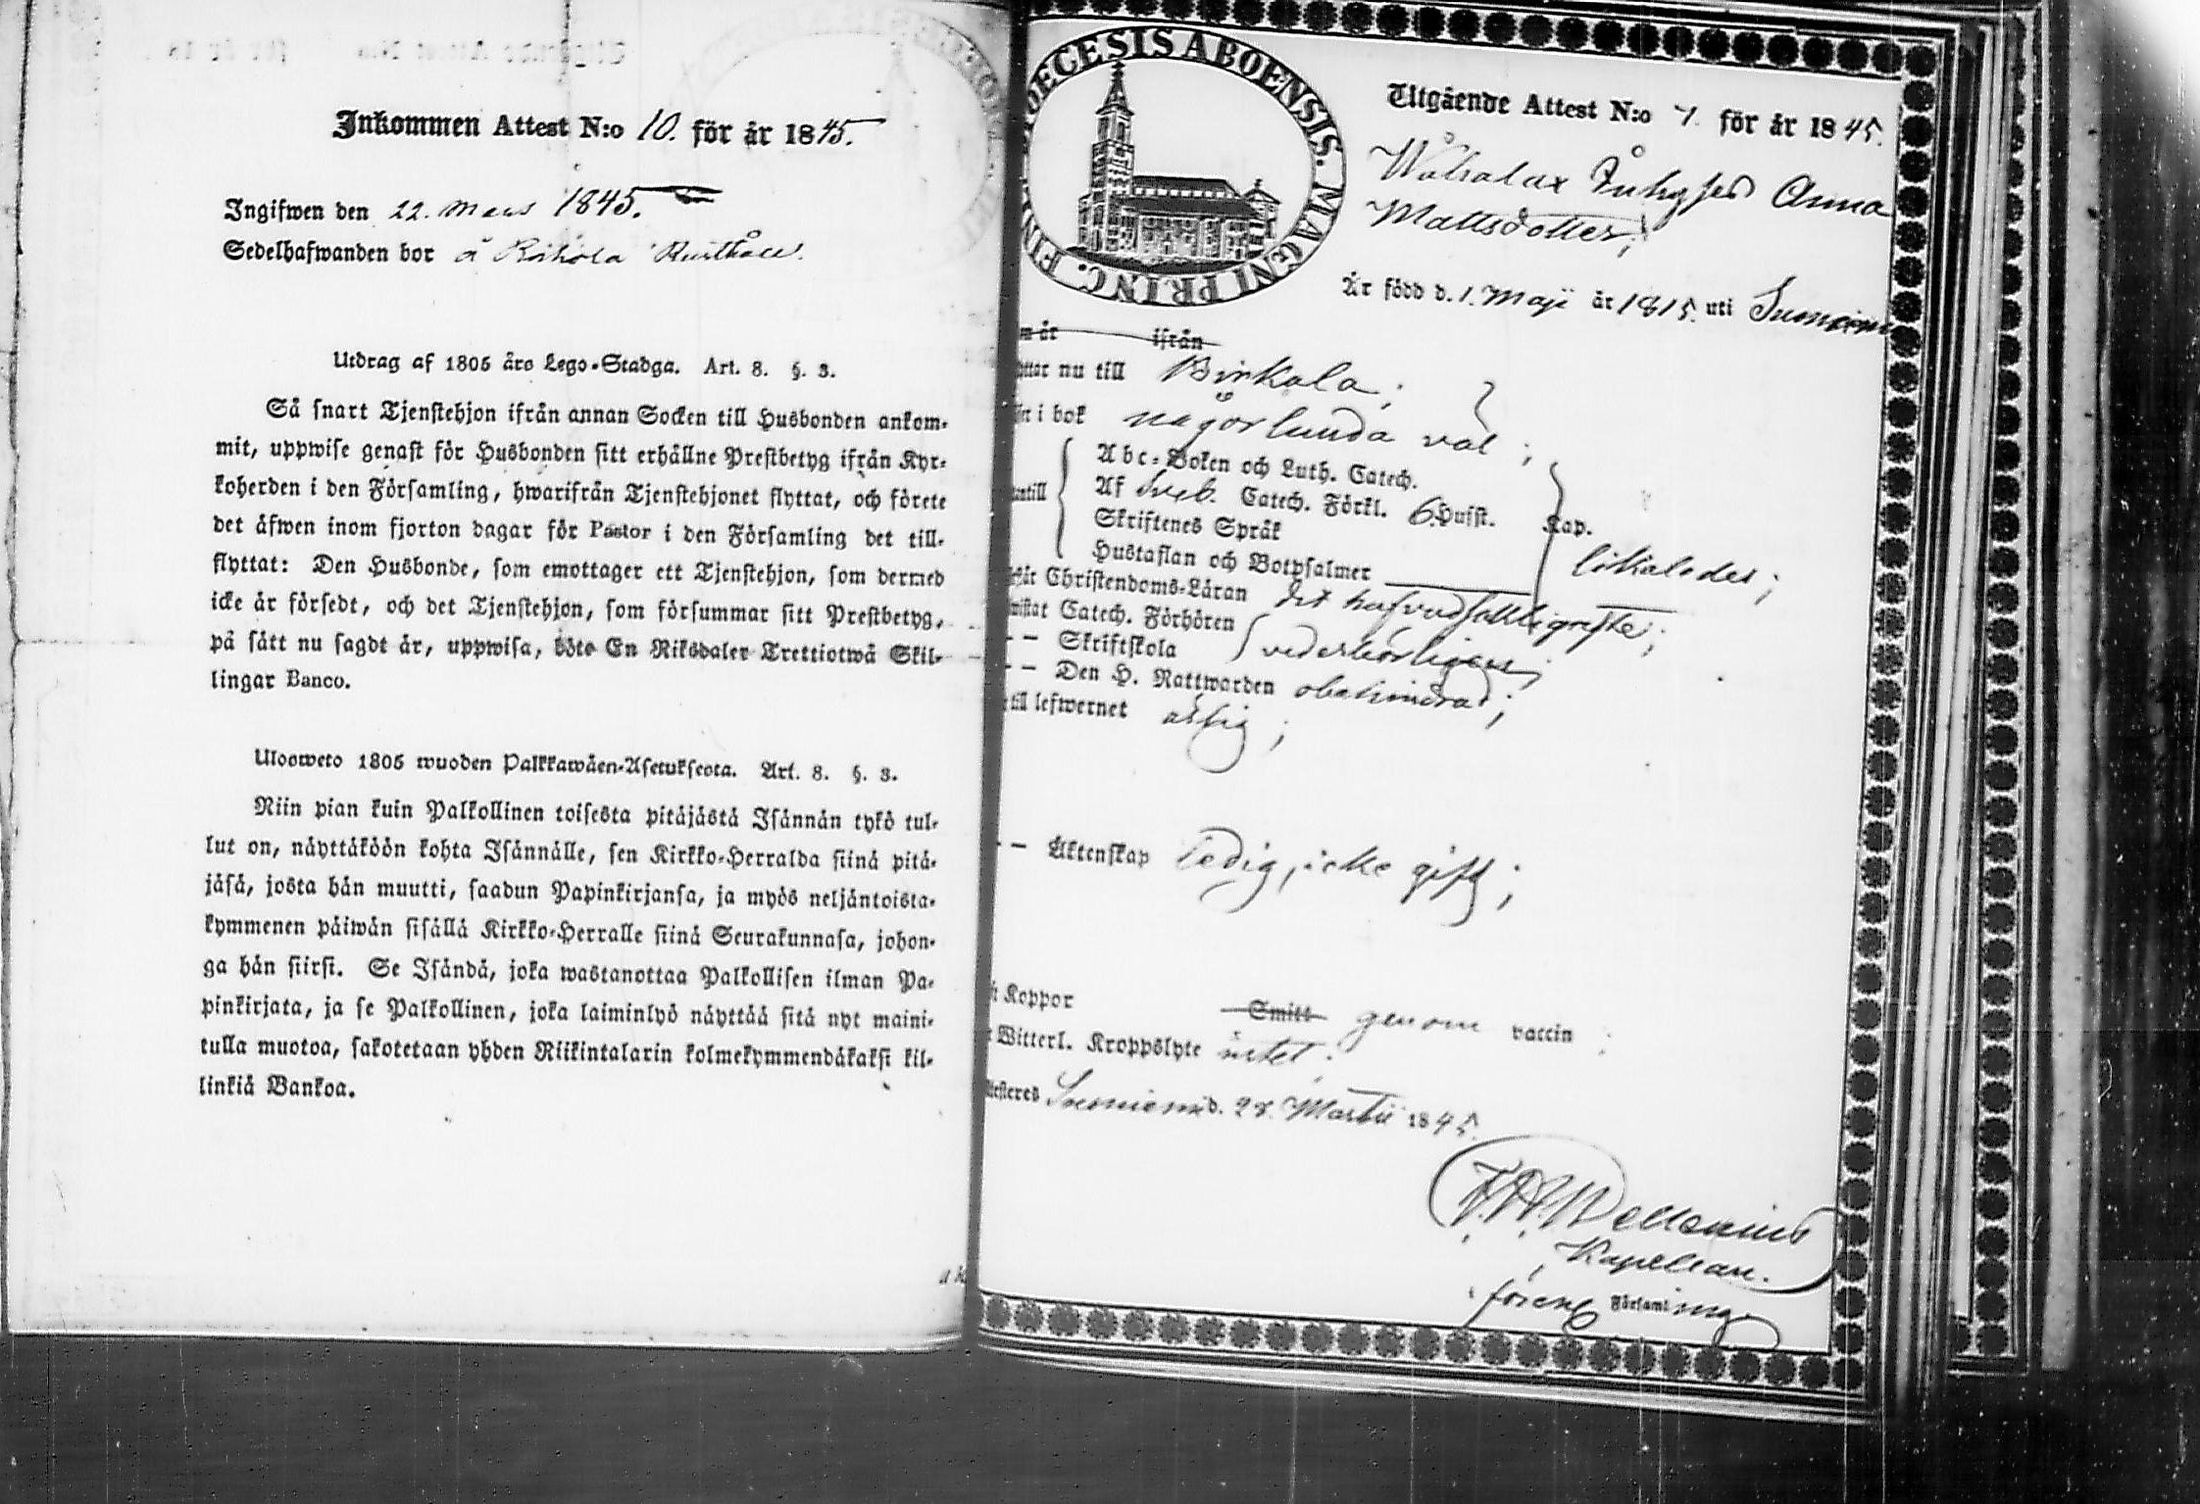 Inkommen Attest N:o 10. för år 1845.
Ingifwen den 22. Mars 1845.
Sedelhafwanden bor å
Utdrag af 1805 års Lego-Stadga. Art. 8. §. 3.
Så snart Tjenstehjon ifrån annan Socken till Husbonden ankom-
mit, uppwise genast för Husbonden sitt erhållne Prestbetyg ifrån Kyr-
koherden i den Församling, hwarifrån Tjenstehjonet flyttat, och förete
det äfwen inom fjorton dagar för Pastor i den Församling det till-
flyttat: Den Husbonde, som emottager ett Tjenstehjon, som dermed
icke är försedt, och det Tjenstehjon, som försummar sitt Prestbetyg,
på sätt nu sagdt är, uppwisa, böte En Riksdaler Trettiotwå Skil-
lingar Banco.
Ulosweto 1805 wuoden Palkkawäen-Asetuksesta. Art. 8. §. 3.
Niin pian kuin Palkollinen toisesta pitäjästä Isännän tykö tul-
lut on, näyttäköön kohta Isännälle, sen Kirkko-Herralda siinä pitä-
jäsä, josta hän muutti, saadun Papinkirjansa, ja myös neljäntoista-
kymmenen päiwän sisällä Kirkko-Herralle siinä Seurakunnasa, johon-
ga hän siirsi. Se Isändä, joka wastanottaa Palkollisen ilman Pa-
pinkirjata, ja se Palkollinen, joka laiminlyö näyttää sitä nyt maini-
tulla muotoa, sakotetaan yhden Riikintalarin kolmekymmendäkaksi kil-
linkiä Bankoa.
DIOECESIS ABOENSIS. MAGNI PRINC. FIN
Utgående Attest N:o 7. för år 1845.
Anna
Mattsdotter;
Är född d. 1. Maji år 1815. uti Suoniemi
år ifrån
flyttar nu till Birkala;
i bok någorlunda väl;
Abc-Boken och Luth. Catech.
Af Sveb. Catech. Förkl. 6. Husst. Kap.
Skriftenes Språk
Hustaflan och Botpsalmer likaledes;
Christendoms-Läran det hufvudsakligaste;
Catech. Förhören
– – Skriftskola vederbörligen;
– – Den H. Nattwarden obehindrad;
till lefwernet ärlig;
– – Äktenskap ledig, icke gift;
Koppor Smitt genom vaccin
Witterl. Kroppslyte intet.
Suoniemi d. 28. Martii 1845.
Kapellan.
Församling